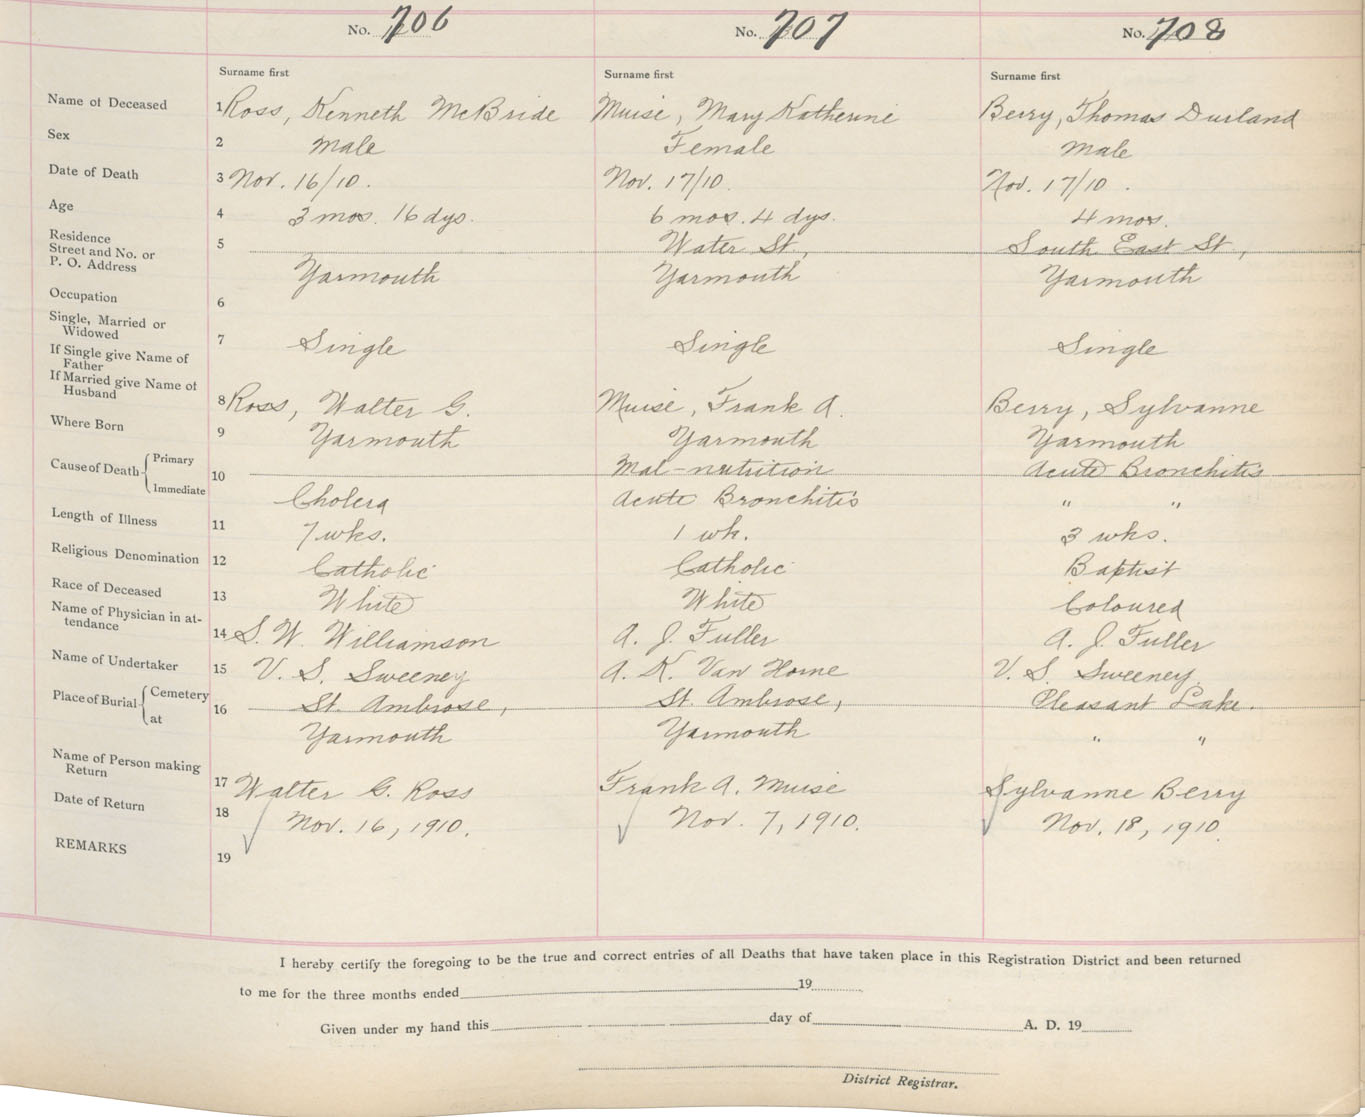 No. 706 No. 707 No. 708
Surname first Surname first Surname first
Name of Deceased 1 Ross, Kenneth McBride Muise, Mary Katherine Berry, Thomas Durland
Sex 2 Male Female Male
Date of Death 3 Nov. 16/10. Nov. 17/10. Nov. 17/10.
Age 4 3 mos. 16 dys. 6 mos. 4 dys. 4 mos.
Residence 5 Water St, South East St,
Street and No. or
P. O. Address Yarmouth Yarmouth Yarmouth
Occupation 6
Single, Married or
Widowed 7 Single Single Single
If Single give Name of
Father
If Married give Name of
Husband 8 Ross, Walter G. Muise, Frank A. Berry, Sylvanne
Where Born 9 Yarmouth Yarmouth Yarmouth
Cause of Death Primary 10 Mal-nutrition Acute Bronchitis
Immediate Cholera Acute Bronchitis " "
Length of Illness 11 7 wks. 1 wk. 3 wks.
Religious Denomination 12 Catholic Catholic Baptist
Race of Deceased 13 White White Coloured
Name of Physician in at-
tendance 14 S. W. Williamson A. J. Fuller A. J. Fuller
Name of Undertaker 15 V. S. Sweeney A. K. Van Horne V. S. Sweeney.
Place of Burial Cemetery 16 St. Ambrose, St. Ambrose, Pleasant Lake.
at Yarmouth Yarmouth " "
Name of Person making
Return 17 Walter G. Ross Frank A. Muise Sylvanne Berry
Date of Return 18 Nov. 16, 1910. Nov. 7, 1910. Nov. 18, 1910.
REMARKS 19
I hereby certify the foregoing to be the true and correct entries of all Deaths that have taken place in this Registration District and been returned
to me for the three months ended 19
Given under my hand this day of A. D. 19
District Registrar.